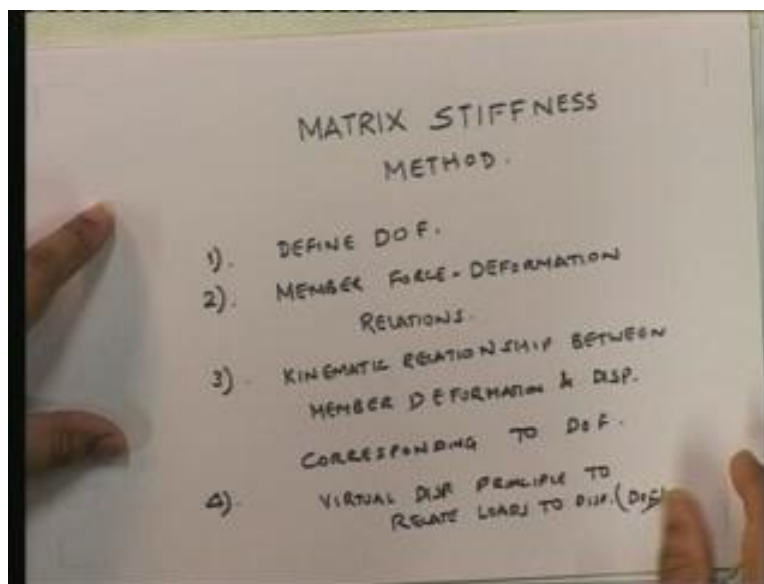 MATRIX STIFFNESS
METHOD.
1). DEFINE DOF.
2). MEMBER FORCE-DEFORMATION
RELATIONS.
3). KINEMATIC RELATIONSHIP BETWEEN
MEMBER DEFORMATION & DISP.
CORRESPONDING TO DOF.
4). VIRTUAL DISP PRINCIPLE TO
RELATE LOADS TO DISP. (DOF)